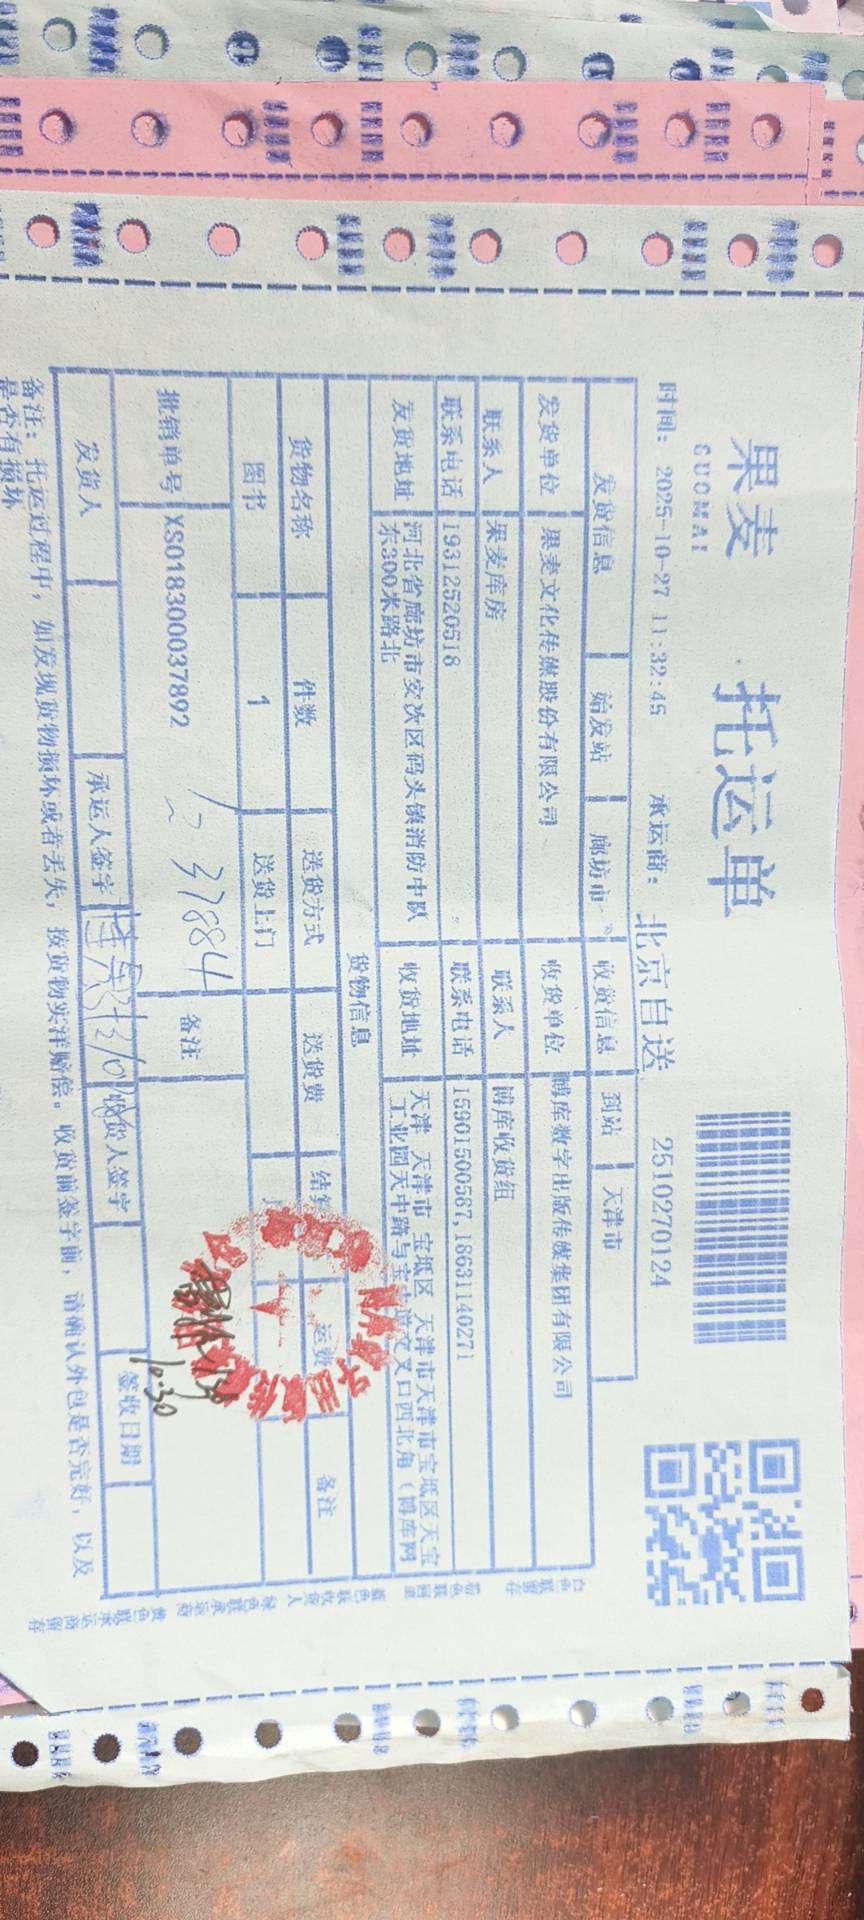 果麦
GUOMAI
托运单
时间：2025-10-27 11:32:45 承运商：北京自送 2510270124
发货信息 始发站 廊坊市 收货信息 到站 天津市
发货单位 果麦文化传媒股份有限公司 收货单位 博库数字出版传媒集团有限公司
联系人 果麦库房 联系人 博库收货组
联系电话 19312520518 联系电话 15901500587,18631140271
发货地址 河北省廊坊市安次区码头镇消防中队 收货地址 天津 天津市 宝坻区 天津市天津市宝坻区天宝
东300米路北 工业园天中路与宝 道交叉口西北角（博库网
货物信息
货物名称 件数 送货方式 送货费 结 运费 备注
图书 1 送货上门
批销单号 XS018300037892 37884 备注
发货人 承运人签字 收货人签字 签收日期
10.30
备注：托运过程中，如发现货物损坏或者丢失，按货物实洋赔偿。收货前签字前，请确认外包是否完好，以及
是否有损坏